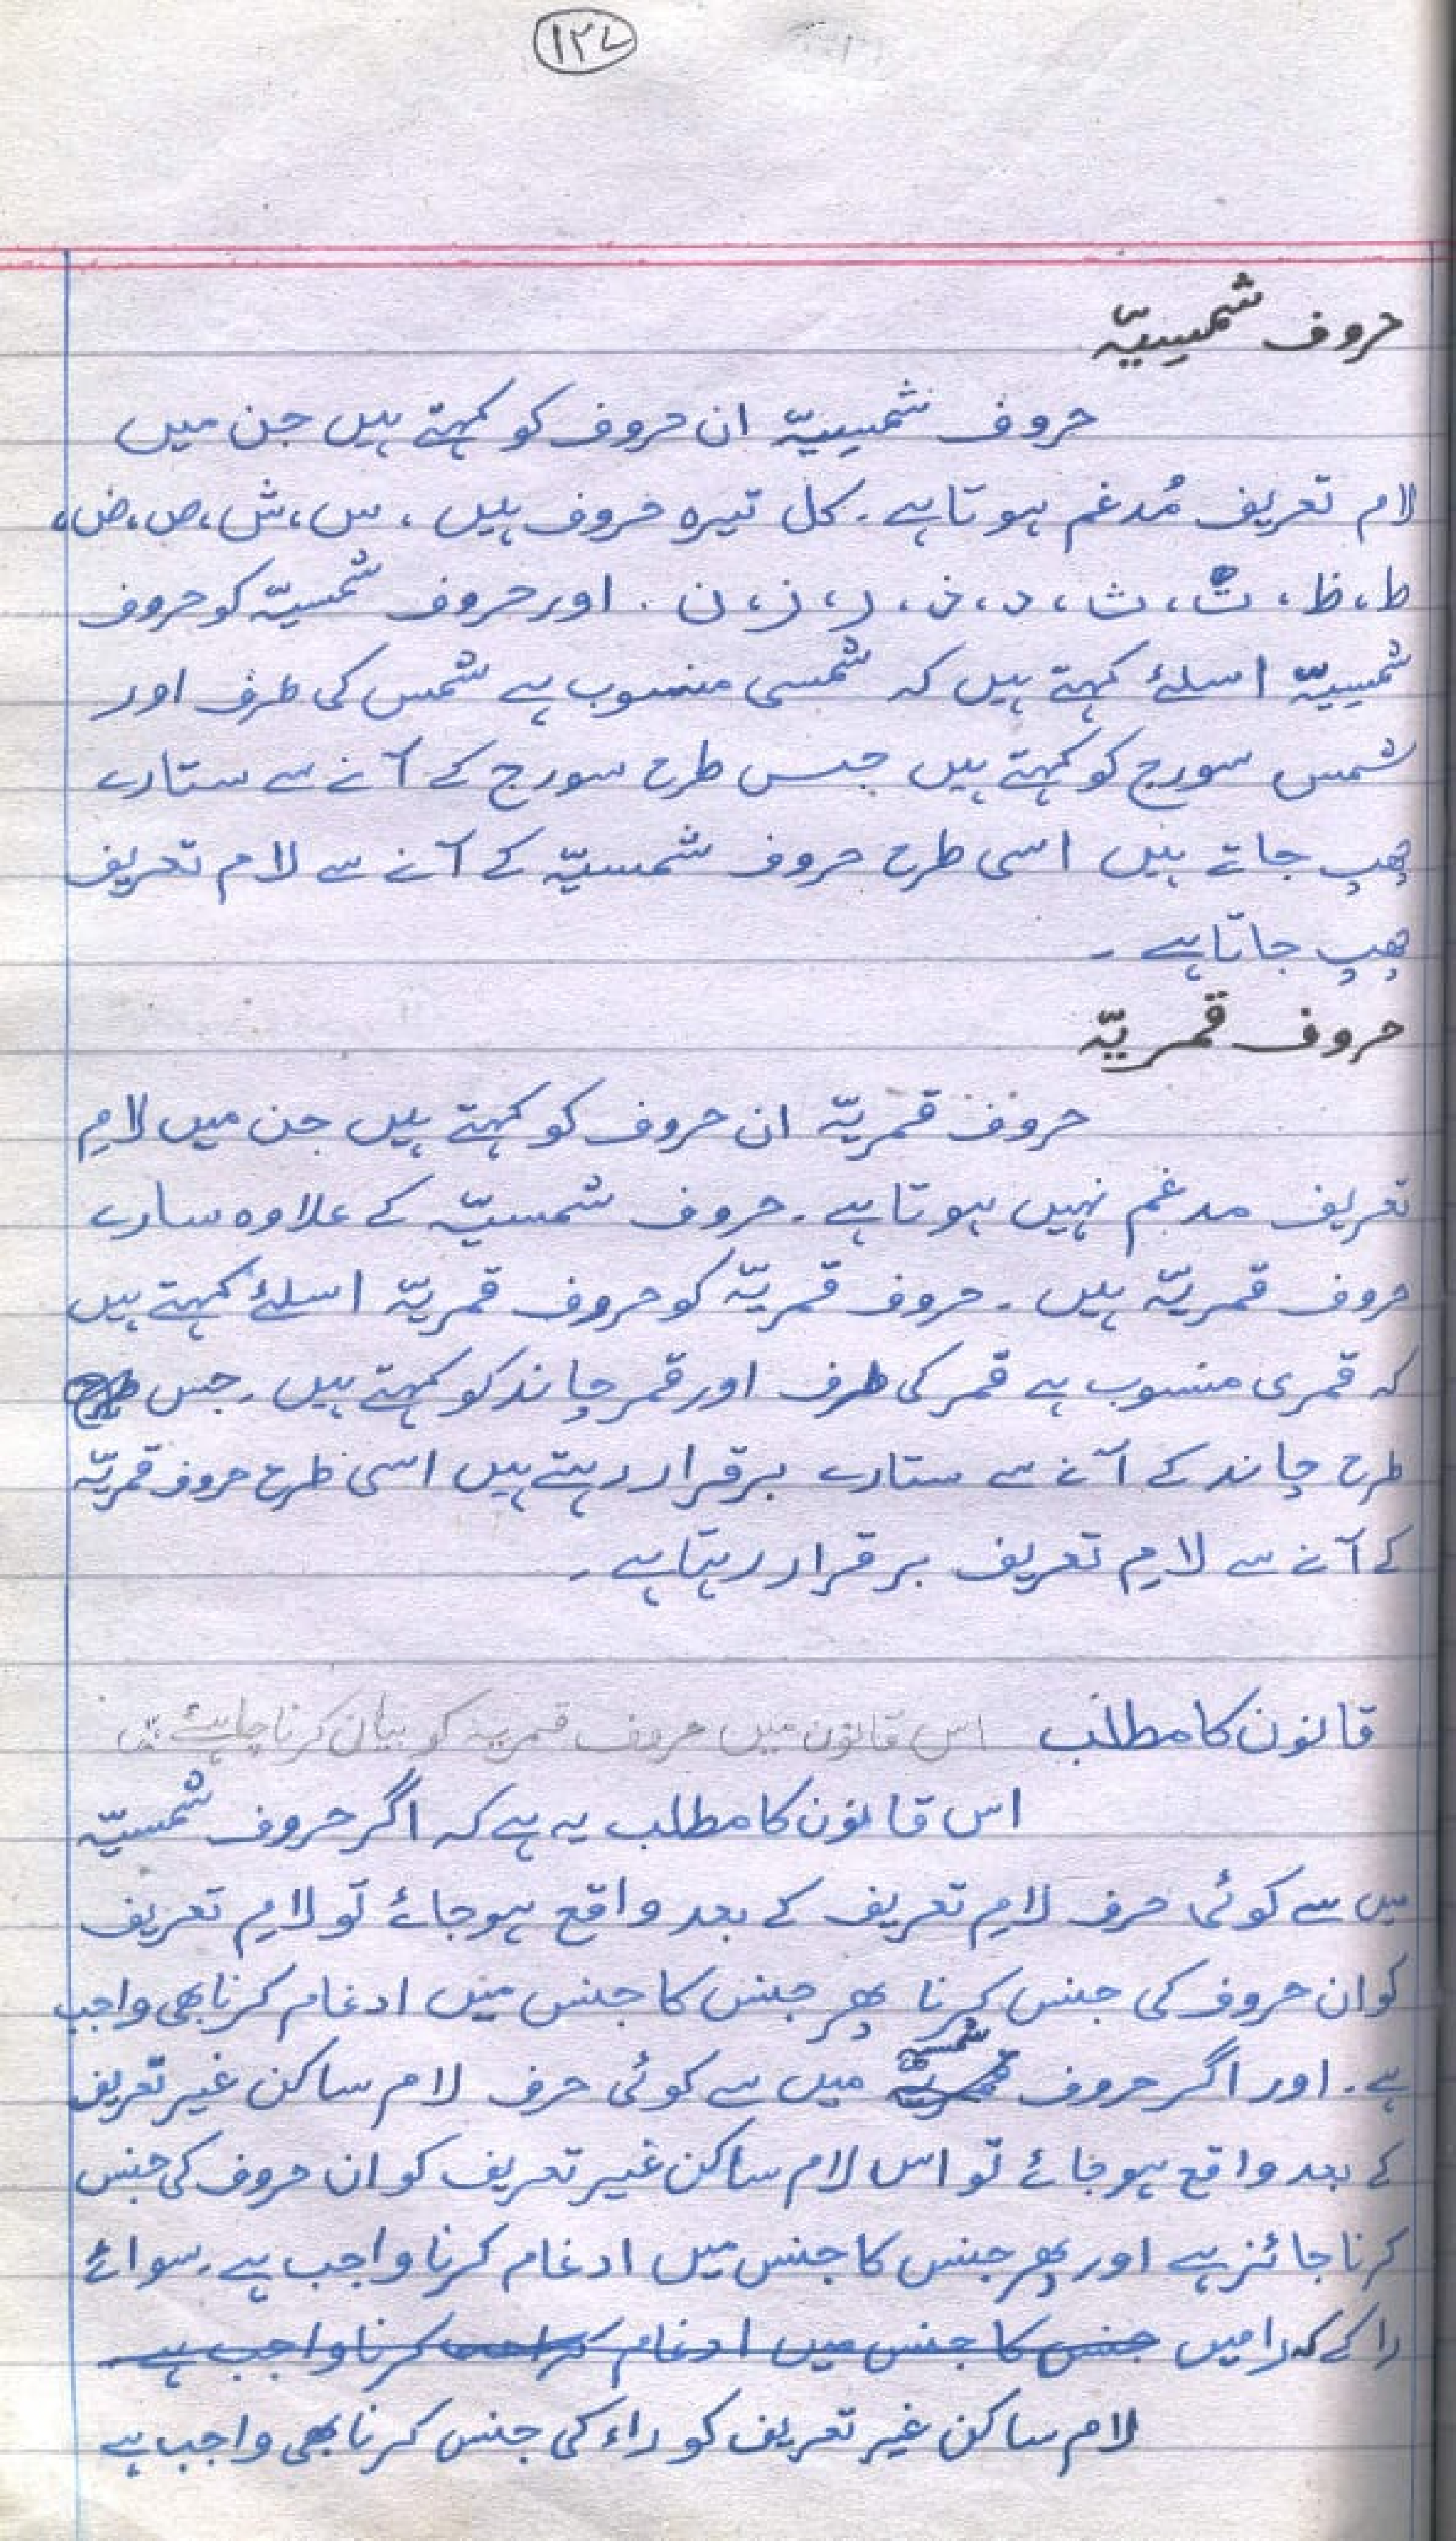 ۱۲۷
حروف شمسیّہ
حروف شمسیّہ ان حروف کو کہتے ہیں جن میں
لام تعریف مُدغم ہوتا ہے۔ کل تیرہ حروف ہیں ، س، ش، ص، ض،
ط، ظ ، ت، ث ، د ، ذ ، ر، ز، ن ۔ اور حروف شمسیّہ کو حروف
شمسیّہ اسلئے کہتے ہیں کہ شمسی منسوب ہے شمس کی طرف اور
شمس سورج کو کہتے ہیں جس طرح سورج کے آنے سے ستارے
چھپ جاتے ہیں اسی طرح حروف شمسیّہ کے آنے سے لام تعریف
چھپ جاتا ہے ۔
حروف قمریّہ
حروف قمریّہ ان حروف کو کہتے ہیں جن میں لامِ
تعریف مدغم نہیں ہوتا ہے ۔ حروف شمسیّہ کے علاوہ سارے
حروف قمریّہ ہیں ۔ حروف قمریّہ کو حروف قمریّہ اسلئے کہتے ہیں
کہ قمری منسوب ہے قمر کی طرف اور قمر چاند کو کہتے ہیں ۔ جس طرح
طرح چاند کے آنے سے ستارے برقرار رہتے ہیں اسی طرح حروف قمریّہ
کے آنے سے لامِ تعریف برقرار رہتا ہے ۔
قانون کا مطلب اس قانون میں حروف قمریہ کو بیان کرنا چاہئے
اس قانون کا مطلب یہ ہے کہ اگر حروف شمسیّہ
میں سے کوئی حرف لامِ تعریف کے بعد واقع ہو جائے تو لامِ تعریف
کو ان حروف کی جنس کرنا پھر جنس کا جنس میں ادغام کرنا بھی واجب
ہے ۔ اور اگر حروف قمریّہ شمسیہ میں سے کوئی حرف لام ساکن غیر تعریف
کے بعد واقع ہو جائے تو اس لام ساکن غیر تعریف کو ان حروف کی جنس
کرنا جائز ہے اور پھر جنس کا جنس میں ادغام کرنا واجب ہے ۔ سوائے
را کے کہ را میں جنس کا جنس میں ادغام کرنا واجب ہے
لام ساکن غیر تعریف کو راء کی جنس کرنا بھی واجب ہے